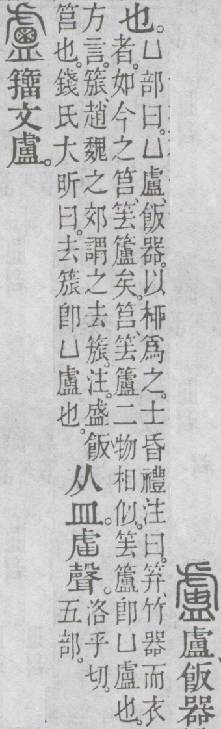 盧盧、飯器
也。
凵部曰。凵盧、飯器。以桺爲之。士昏禮注曰。笲、竹器而衣
者。如今之筥、𥬔籚矣。筥、𥬔籚二物相似。𥬔籚卽凵盧也。
方言。䈰、趙魏之郊謂之去䈰。注。盛飯
筥也。錢氏大昕曰。去䈰卽凵盧也。
从皿。𧆨聲。
洛乎切。
五部。
籒文盧。